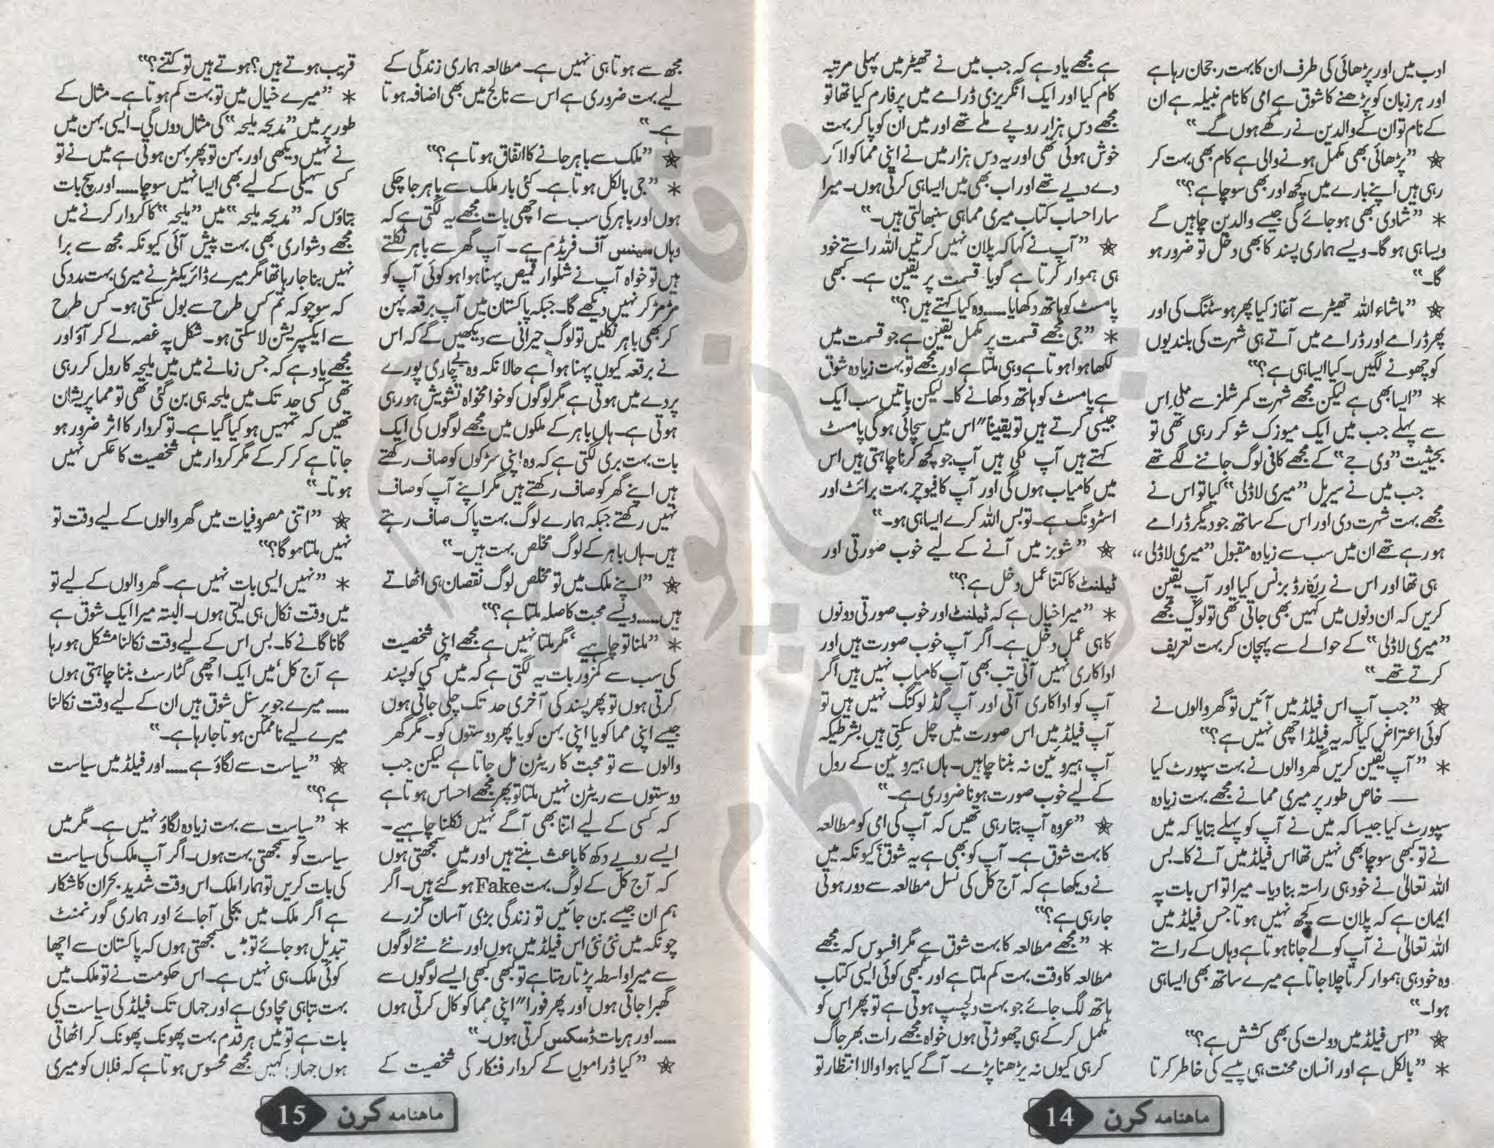 ادب میں اور پڑھائی کی طرف ان کا بہت رجحان رہا ہے
اور ہر زبان کو پڑھنے کا شوق ہے امی کا نام نبیلہ ہے ان
کے نام تو ان کے والدین نے رکھے ہوں گے۔“
✯ ”پڑھائی بھی مکمل ہونے والی ہے کام بھی بہت کر
رہی ہیں اپنے بارے میں کچھ اور بھی سوچا ہے؟“
* ”شادی بھی ہو جائے گی جیسے والدین چاہیں گے
ویسا ہی ہو گا۔ ویسے ہماری پسند کا بھی دخل تو ضرور ہو
گا۔“
✯ ”ماشاء اللہ تھیٹر سے آغاز کیا پھر ہوسٹنگ کی اور
پھر ڈرامے اور ڈرامے میں آتے ہی شہرت کی بلندیوں
کو چھونے لگیں۔ کیا ایسا ہی ہے؟“
* ”ایسا بھی ہے لیکن مجھے شہرت کمرشلز سے ملی اس
سے پہلے جب میں ایک میوزک شو کر رہی تھی تو
بحیثیت ”وی جے“ کے مجھے کافی لوگ جاننے لگے تھے
جب میں نے سیریل ”میری لاڈلی“ کیا تو اس نے
مجھے بہت شہرت دی اور اس کے ساتھ جو دیگر ڈرامے
ہو رہے تھے ان میں سب سے زیادہ مقبول ”میری لاڈلی“
ہی تھا اور اس نے ریکارڈ بزنس کیا اور آپ یقین
کریں کہ ان دنوں میں کہیں بھی جاتی تھی تو لوگ مجھے
”میری لاڈلی“ کے حوالے سے پہچان کر بہت تعریف
کرتے تھے۔“
✯ ”جب آپ اس فیلڈ میں آئیں تو گھر والوں نے
کوئی اعتراض کیا کہ یہ فیلڈ اچھی نہیں ہے؟“
* ”آپ یقین کریں گھر والوں نے بہت سپورٹ کیا
— خاص طور پر میری ممانے مجھے بہت زیادہ
سپورٹ کیا جیسا کہ میں نے آپ کو پہلے بتایا کہ میں
نے تو کبھی سوچا بھی نہیں تھا اس فیلڈ میں آنے کا۔ بس
اللہ تعالیٰ نے خود ہی راستہ بنا دیا۔ میرا تو اس بات پہ
ایمان ہے کہ پلان سے کچھ نہیں ہوتا جس فیلڈ میں
اللہ تعالیٰ نے آپ کو لے جانا ہوتا ہے وہاں کے راستے
وہ خود ہی ہموار کرتا چلا جاتا ہے میرے ساتھ بھی ایسا ہی
ہوا۔“
✯ ”اس فیلڈ میں دولت کی بھی کشش ہے؟“
* ”بالکل ہے اور انسان محنت ہی پیسے کی خاطر کرتا
ہے مجھے یاد ہے کہ جب میں نے تھیٹر میں پہلی مرتبہ
کام کیا اور ایک انگریزی ڈرامے میں پرفارم کیا تھا تو
مجھے دس ہزار روپے ملے تھے اور میں ان کو پا کر بہت
خوش ہوئی تھی اور یہ دس ہزار میں نے اپنی مما کو لا کر
دے دیے تھے اور اب بھی میں ایسا ہی کرتی ہوں۔ میرا
سارا حساب کتاب میری مما ہی سنبھالتی ہیں۔“
✯ ”آپ نے کہا کہ پلان نہیں کرتیں اللہ راستے خود
ہی ہموار کرتا ہے گویا قسمت پر یقین ہے۔ کبھی
پامسٹ کو ہاتھ دکھایا.....وہ کیا کہتے ہیں؟“
* ”جی مجھے قسمت پر مکمل یقین ہے جو قسمت میں
لکھا ہوا ہوتا ہے وہی ملتا ہے اور مجھے تو بہت زیادہ شوق
ہے پامسٹ کو ہاتھ دکھانے کا۔ لیکن باتیں سب ایک
جیسی کرتے ہیں تو یقیناً اس میں سچائی ہو گی پامسٹ
کہتے ہیں آپ لکی ہیں آپ جو کچھ کرنا چاہتی ہیں اس
میں کامیاب ہوں گی اور آپ کا فیوچر بہت برائٹ اور
اسٹرونگ ہے۔ تو بس اللہ کرے ایسا ہی ہو۔“
✯ ”شوبز میں آنے کے لیے خوب صورتی اور
ٹیلنٹ کا کتنا عمل دخل ہے؟“
* ”میرا خیال ہے کہ ٹیلنٹ اور خوب صورتی دونوں
کا ہی عمل دخل ہے۔ اگر آپ خوب صورت ہیں اور
اداکاری نہیں آتی تب بھی آپ کامیاب نہیں ہیں اگر
آپ کو اداکاری آتی اور آپ گڈ لوکنگ نہیں ہیں تو
آپ فیلڈ میں اس صورت میں چل سکتی ہیں بشرطیکہ
آپ ہیروئین نہ بننا چاہیں۔ ہاں ہیروئین کے رول
کے لیے خوب صورت ہونا ضروری ہے۔“
✯ ”عروہ آپ بتا رہی تھیں کہ آپ کی امی کو مطالعہ
کا بہت شوق ہے۔ آپ کو بھی ہے یہ شوق؟ کیونکہ میں
نے دیکھا ہے کہ آج کل کی نسل مطالعہ سے دور ہوتی
جا رہی ہے؟“
* ”مجھے مطالعہ کا بہت شوق ہے مگر افسوس کہ مجھے
مطالعہ کا وقت بہت کم ملتا ہے اور کبھی کوئی ایسی کتاب
ہاتھ لگ جائے جو بہت دلچسپ ہوتی ہے تو پھر اس کو
مکمل کر کے ہی چھوڑتی ہوں خواہ مجھے رات بھر جاگ
کر ہی کیوں نہ پڑھنا پڑے۔ آگے کیا ہوا والا انتظار تو
ماہنامہ کرن 14
مجھ سے ہوتا ہی نہیں ہے۔ مطالعہ ہماری زندگی کے
لیے بہت ضروری ہے اس سے نالج میں بھی اضافہ ہوتا
ہے۔“
✯ ”ملک سے باہر جانے کا اتفاق ہوتا ہے؟“
* ”جی بالکل ہوتا ہے۔ کئی بار ملک سے باہر جا چکی
ہوں اور باہر کی سب سے اچھی بات مجھے یہ لگتی ہے کہ
وہاں سینس آف فریڈم ہے۔ آپ گھر سے باہر نکلتے
ہیں تو خواہ آپ نے شلوار قمیص پہنا ہوا ہو کوئی آپ کو
مڑ مڑ کر نہیں دیکھے گا۔ جبکہ پاکستان میں آپ برقعہ پہن
کر بھی باہر نکلیں تو لوگ حیرانی سے دیکھیں گے کہ اس
نے برقعہ کیوں پہنا ہوا ہے حالانکہ وہ بیچاری پورے
پردے میں ہوتی ہے مگر لوگوں کو خوامخواہ تشویش ہو رہی
ہوتی ہے۔ ہاں باہر کے ملکوں میں مجھے لوگوں کی ایک
بات بہت بری لگتی ہے کہ وہ اپنی سڑکوں کو صاف رکھتے
ہیں اپنے گھر کو صاف رکھتے ہیں مگر اپنے آپ کو صاف
نہیں رکھتے جبکہ ہمارے لوگ بہت پاک صاف رہتے
ہیں۔ ہاں باہر کے لوگ مخلص بہت ہیں۔“
✯ ”اپنے ملک میں تو مخلص لوگ نقصان ہی اٹھاتے
ہیں.....ویسے محبت کا صلہ ملتا ہے؟“
* ”ملنا تو چاہیے مگر ملتا نہیں ہے مجھے اپنی شخصیت
کی سب سے کمزور بات یہ لگتی ہے کہ میں کسی کو پسند
کرتی ہوں تو پھر پسند کی آخری حد تک چلی جاتی ہوں
جیسے اپنی مما کو یا اپنی بہن کو یا پھر دوستوں کو۔ مگر گھر
والوں سے تو محبت کا ریٹرن مل جاتا ہے لیکن جب
دوستوں سے ریٹرن نہیں ملتا تو پھر مجھے احساس ہوتا ہے
کہ کسی کے لیے اتنا بھی آگے نہیں نکلنا چاہیے۔
ایسے رویے دکھ کا باعث بنتے ہیں اور میں سمجھتی ہوں
کہ آج کل کے لوگ بہت Fake ہو گئے ہیں۔ اگر
ہم ان جیسے بن جائیں تو زندگی بڑی آسان گزرے
چونکہ میں نئی نئی اس فیلڈ میں ہوں اور نئے نئے لوگوں
سے میرا واسطہ پڑتا رہتا ہے تو کبھی کبھی ایسے لوگوں سے
گھبرا جاتی ہوں اور پھر فوراً اپنی مما کو کال کرتی ہوں
.....اور ہر بات ڈسکس کرتی ہوں۔“
✯ ”کیا ڈراموں کے کردار فنکار کی شخصیت کے
قریب ہوتے ہیں؟ ہوتے ہیں تو کتنے؟“
* ”میرے خیال میں تو بہت کم ہوتا ہے۔ مثال کے
طور پر میں ”مدیحہ ملیحہ“ کی مثال دوں گی۔ ایسی بہن میں
نے نہیں دیکھی اور بہن تو پھر بہن ہوتی ہے میں نے تو
کسی سہیلی کے لیے بھی ایسا نہیں سوچا.....اور سچ بات
بتاؤں کہ ”مدیحہ ملیحہ“ میں ”ملیحہ“ کا کردار کرنے میں
مجھے دشواری بھی بہت پیش آئی کیونکہ مجھ سے برا
نہیں بنا جا رہا تھا مگر میرے ڈائریکٹر نے میری بہت مدد کی
کہ سوچو کہ تم کس طرح سے بول سکتی ہو۔ کس طرح
سے ایکسپریشن لا سکتی ہو۔ شکل پہ غصہ لے کر آؤ اور
مجھے یاد ہے کہ جس زمانے میں میں ملیحہ کا رول کر رہی
تھی کسی حد تک میں ملیحہ ہی بن گئی تھی تو مما پریشان
تھیں کہ تمہیں ہو کیا گیا ہے۔ تو کردار کا اثر ضرور ہو
جاتا ہے کر کر کے مگر کردار میں شخصیت کا عکس نہیں
ہوتا۔“
✯ ”اتنی مصروفیات میں گھر والوں کے لیے وقت تو
نہیں ملتا ہو گا؟“
* ”نہیں ایسی بات نہیں ہے۔ گھر والوں کے لیے تو
میں وقت نکال ہی لیتی ہوں۔ البتہ میرا ایک شوق ہے
گانا گانے کا۔ بس اس کے لیے وقت نکالنا مشکل ہو رہا
ہے آج کل میں ایک اچھی گٹارسٹ بننا چاہتی ہوں
.....میرے جو پرسنل شوق ہیں ان کے لیے وقت نکالنا
میرے لیے ناممکن ہوتا جا رہا ہے۔“
✯ ”سیاست سے لگاؤ ہے.....اور فیلڈ میں سیاست
ہے؟“
* ”سیاست سے بہت زیادہ لگاؤ نہیں ہے۔ مگر میں
سیاست کو سمجھتی بہت ہوں۔ اگر آپ ملک کی سیاست
کی بات کریں تو ہمارا ملک اس وقت شدید بحران کا شکار
ہے اگر ملک میں بجلی آ جائے اور ہماری گورنمنٹ
تبدیل ہو جائے تو میں سمجھتی ہوں کہ پاکستان سے اچھا
کوئی ملک ہی نہیں ہے۔ اس حکومت نے تو ملک میں
بہت تباہی مچا دی ہے اور جہاں تک فیلڈ کی سیاست کی
بات ہے تو میں ہر قدم بہت پھونک پھونک کر اٹھاتی
ہوں جہاں کہیں مجھے محسوس ہوتا ہے کہ فلاں کو میری
ماہنامہ کرن 15